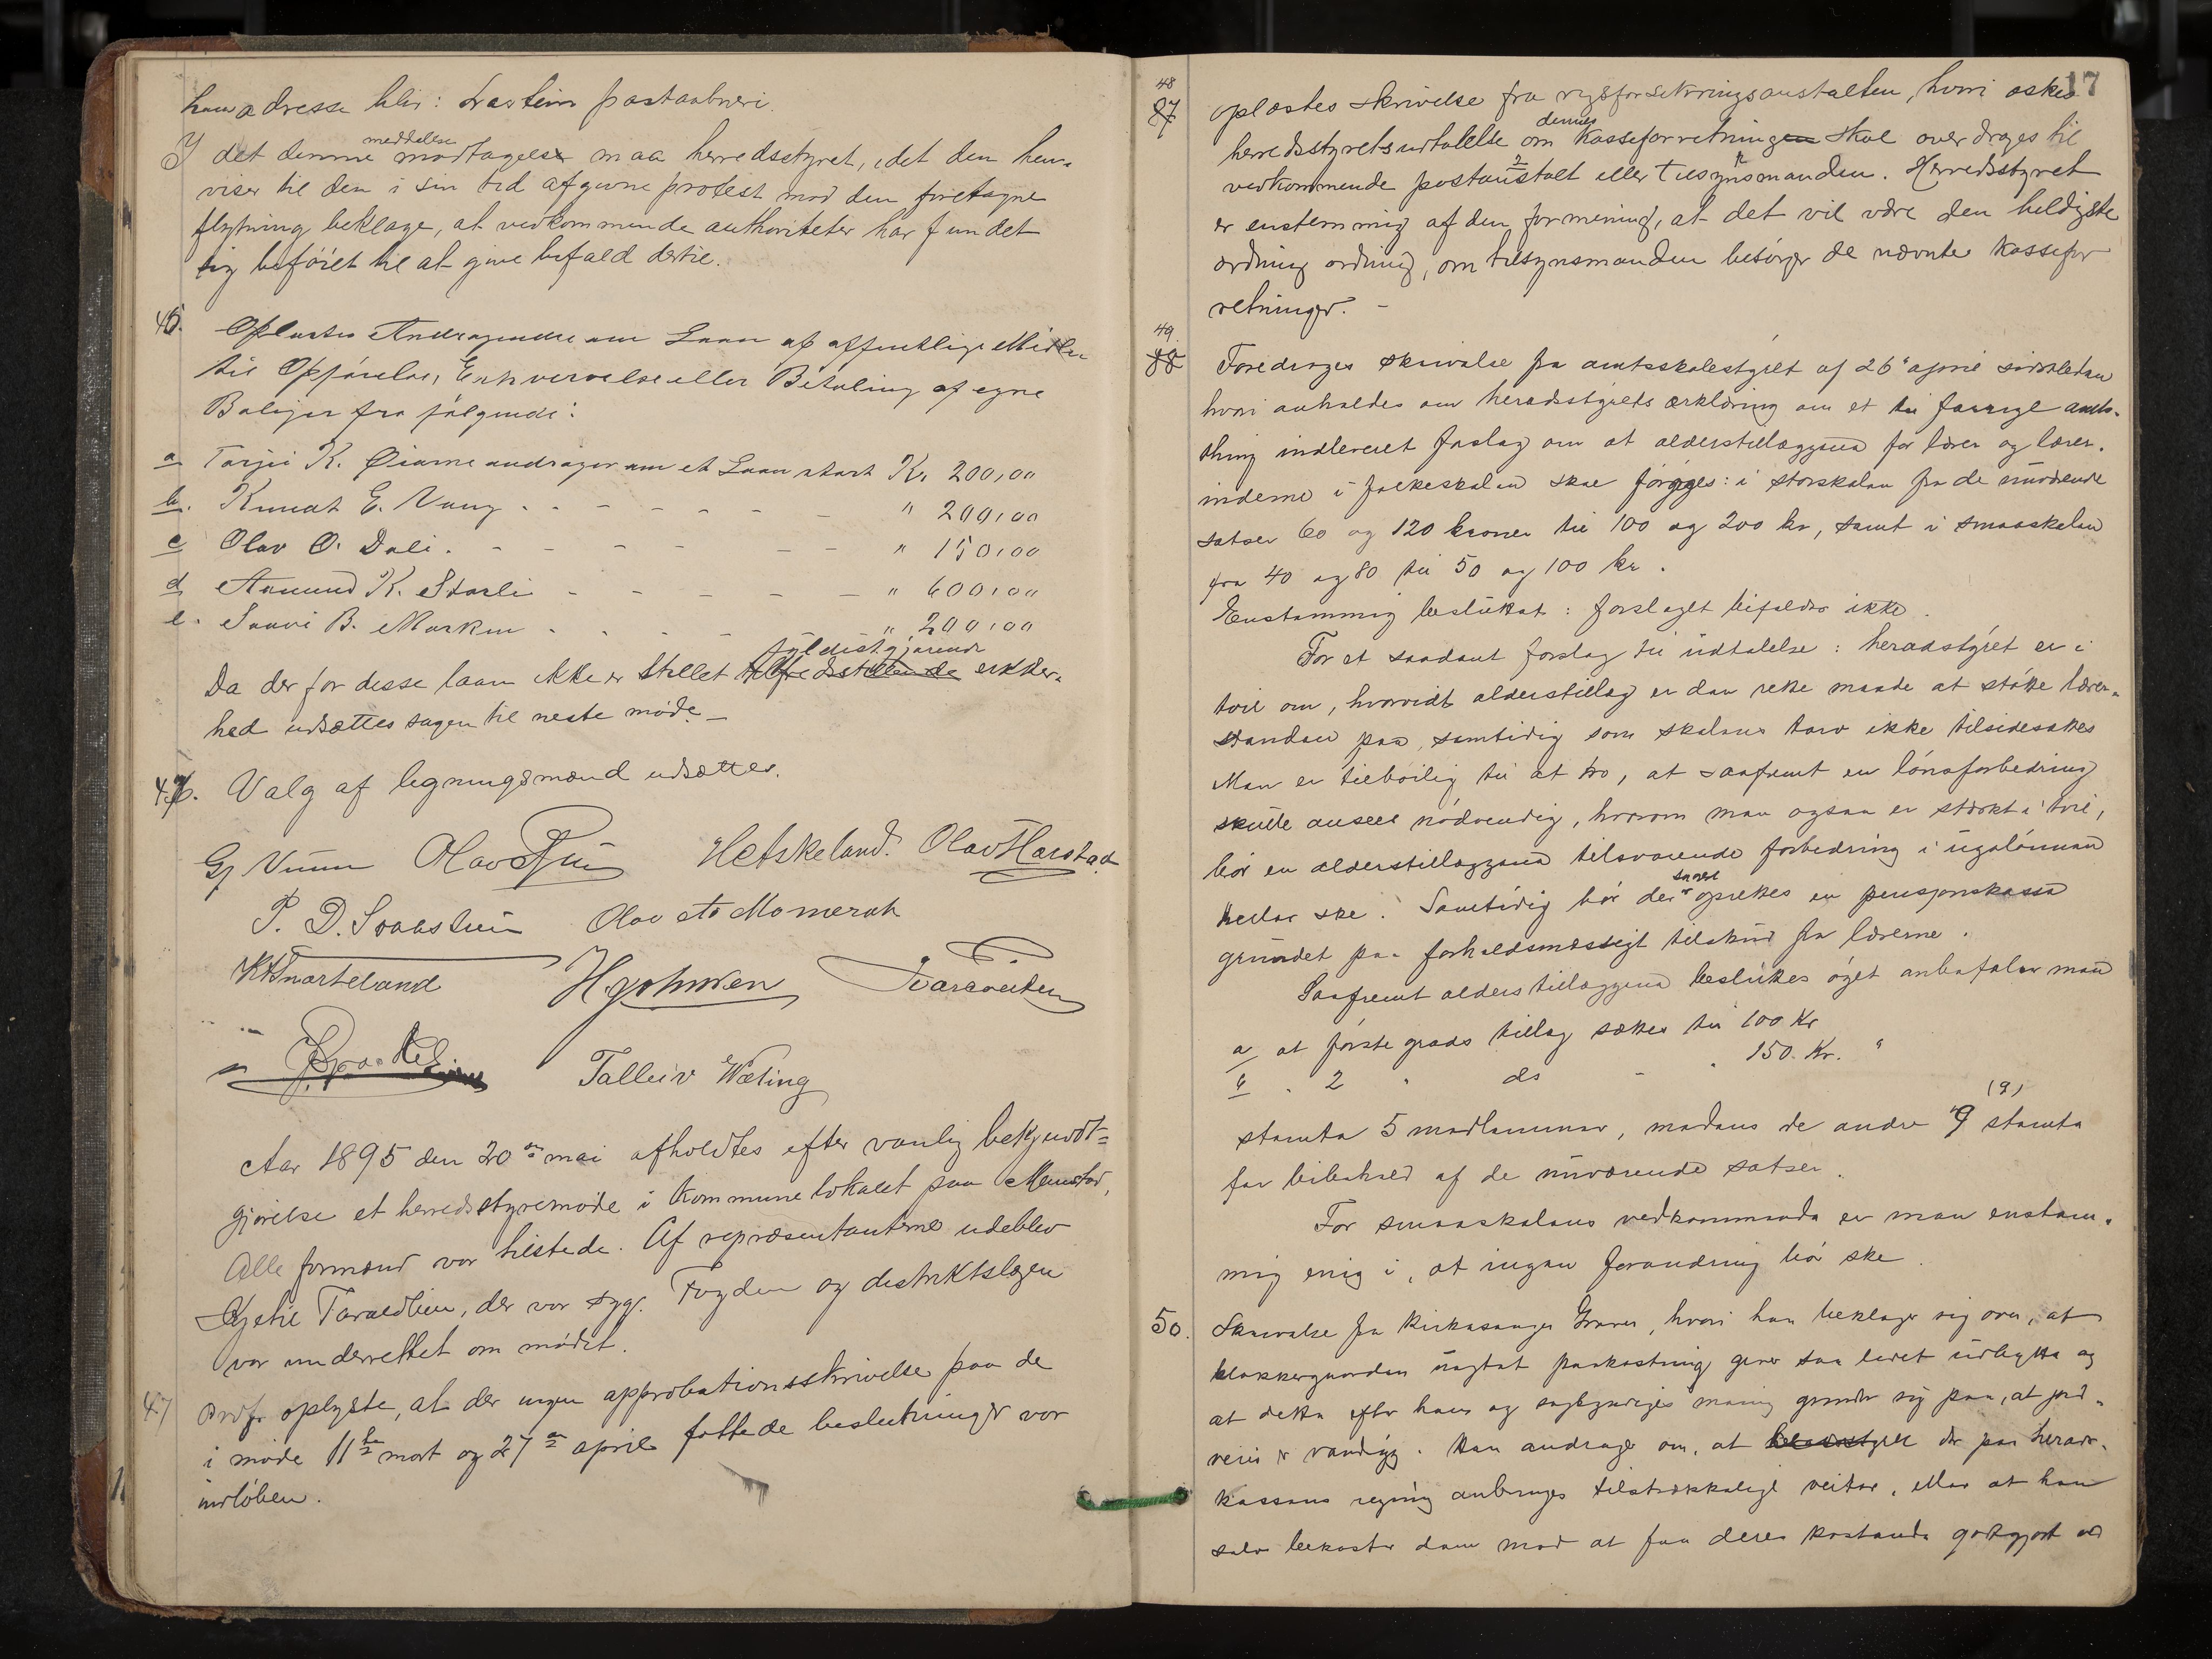 hans adresse blir: Traeteim postaabneri.
I det denne meddelse modtagelse maa herredsstyret, idet den hen-
viser til den i sin tid afgivne protest mod den foretagne
flytning beklage, at vedkommende authoriteter har fundet
sig beføiet til at give bifald dertil.
45. Oplæstes Andragender om Laan af offentlige Midler
til Opførelse, Erhvervelse eller Betaling af egne
Boliger fra følgende:
a Torjei K. Øiarne andrager om et Laan stort Kr. 200,00
b. Knudt E. Vang " 200,00
c Olav O. Dali " 150,00
d Aamund K. Starli " 600,00
e. Saavi B. Marken " 200,00
fyldestgjørende
Da der for disse laan ikke er stillet tilfredsstillende sikker-
hed udsættes sagen til neste møde –
46. Valg af ligningsmænd udsættes.
Gj Unum Olav Hetskeland. Olav Harstad
P. D. Svaastuin Olav Momerak
KH Snarteland H. Johnsen
Talleiv Wæting
Aar 1895 den 20de mai afholdtes efter vanlig bekjendt-
gjørelse et herredsstyremøde i kommunelokalet paa Menstad,
Alle formænd var tilstede. Af repræsentanterne udeblev
Kjetil Taraldlien, der var syg. Fogden og distriktslægen
var underrettet om mødet.
47 Ordf. oplyste, at der ingen approbationsskrivelse paa de
i møde 11te mart og 27de april fattede beslutninger var
indløben.
17
48
87 oplæstes skrivelse fra rigsforsikringsanstalten, hvori æskes
herredsstyrets udtalelse om dennes kasseforretninger skal overdrages til
vedkommende postanstalt eller tilsynsmanden. Herredsstyret
er enstemmig af den formening, at det vil være den heldigste
ordning ordning, om tilsynsmanden besørger de nævnte kassefor
retninger. –
49.
88 Foredroges skrivelse fra amtsskolestyret af 26de april sidstleden
hvori anholdes om herredsstyrets erklæring om et til forrige amts-
thing indleveret forslag om at alderstillæggene for lærer og lærer-
inderne i folkeskolen skal forøges: i storskolen fra de nuværende
satser 60 og 120 kroner til 100 og 200 kr, samt i smaaskolen
fra 40 og 80 til 50 og 100 kr.
Enstemmig besluttet: forslaget bifaldes ikke.
For et saadant forslag til udtalelse: herredstyret er i
tvil om, hvorvidt alderstillæg er den rette maade at støtte lærer-
standen paa, samtidig som skolens tarv ikke tilsidesættes
Man er tilbøilig til at tro, at saafremt en lønsforbedring
skulle ansees nødvendig, hvorom man ogsaa er stærkt i tvil,
bør en alderstillæggene tilsvarende forbedring i ugelønnen
heller ske. Samtidig bør der snarest oprettes en pensjonskasse
grundet paa forholdsmæssigt tilskud fra lærerne.
Saafremt alderstillæggene besluttes øget anbefaler man
a at første grads tillæg sættes til 100 Kr
b " 2 " ds " " 150 Kr. "
stemte 5 medlemmer, medens de andre 9 (9) stemte
for bibehold af de nuværende satser.
For smaaskolens vedkommende er man enstem-
mig enig i, at ingen forandring bør ske.
50. Skrivelse fra Kirkesanger Graver, hvori han beklager sig over, at
klokkergaarden uagtet paakostning giver saa lidet udbytte og
at dette efter hans og sagkyndiges mening grunder sig paa, at jord-
veien er vandsyg. Han andrager om, at der paa herreds-
kassens regning anbringes tilstrækkelige veiter, eller at han
selv bekoster dem mod at faa deres kostende godtgjort ved